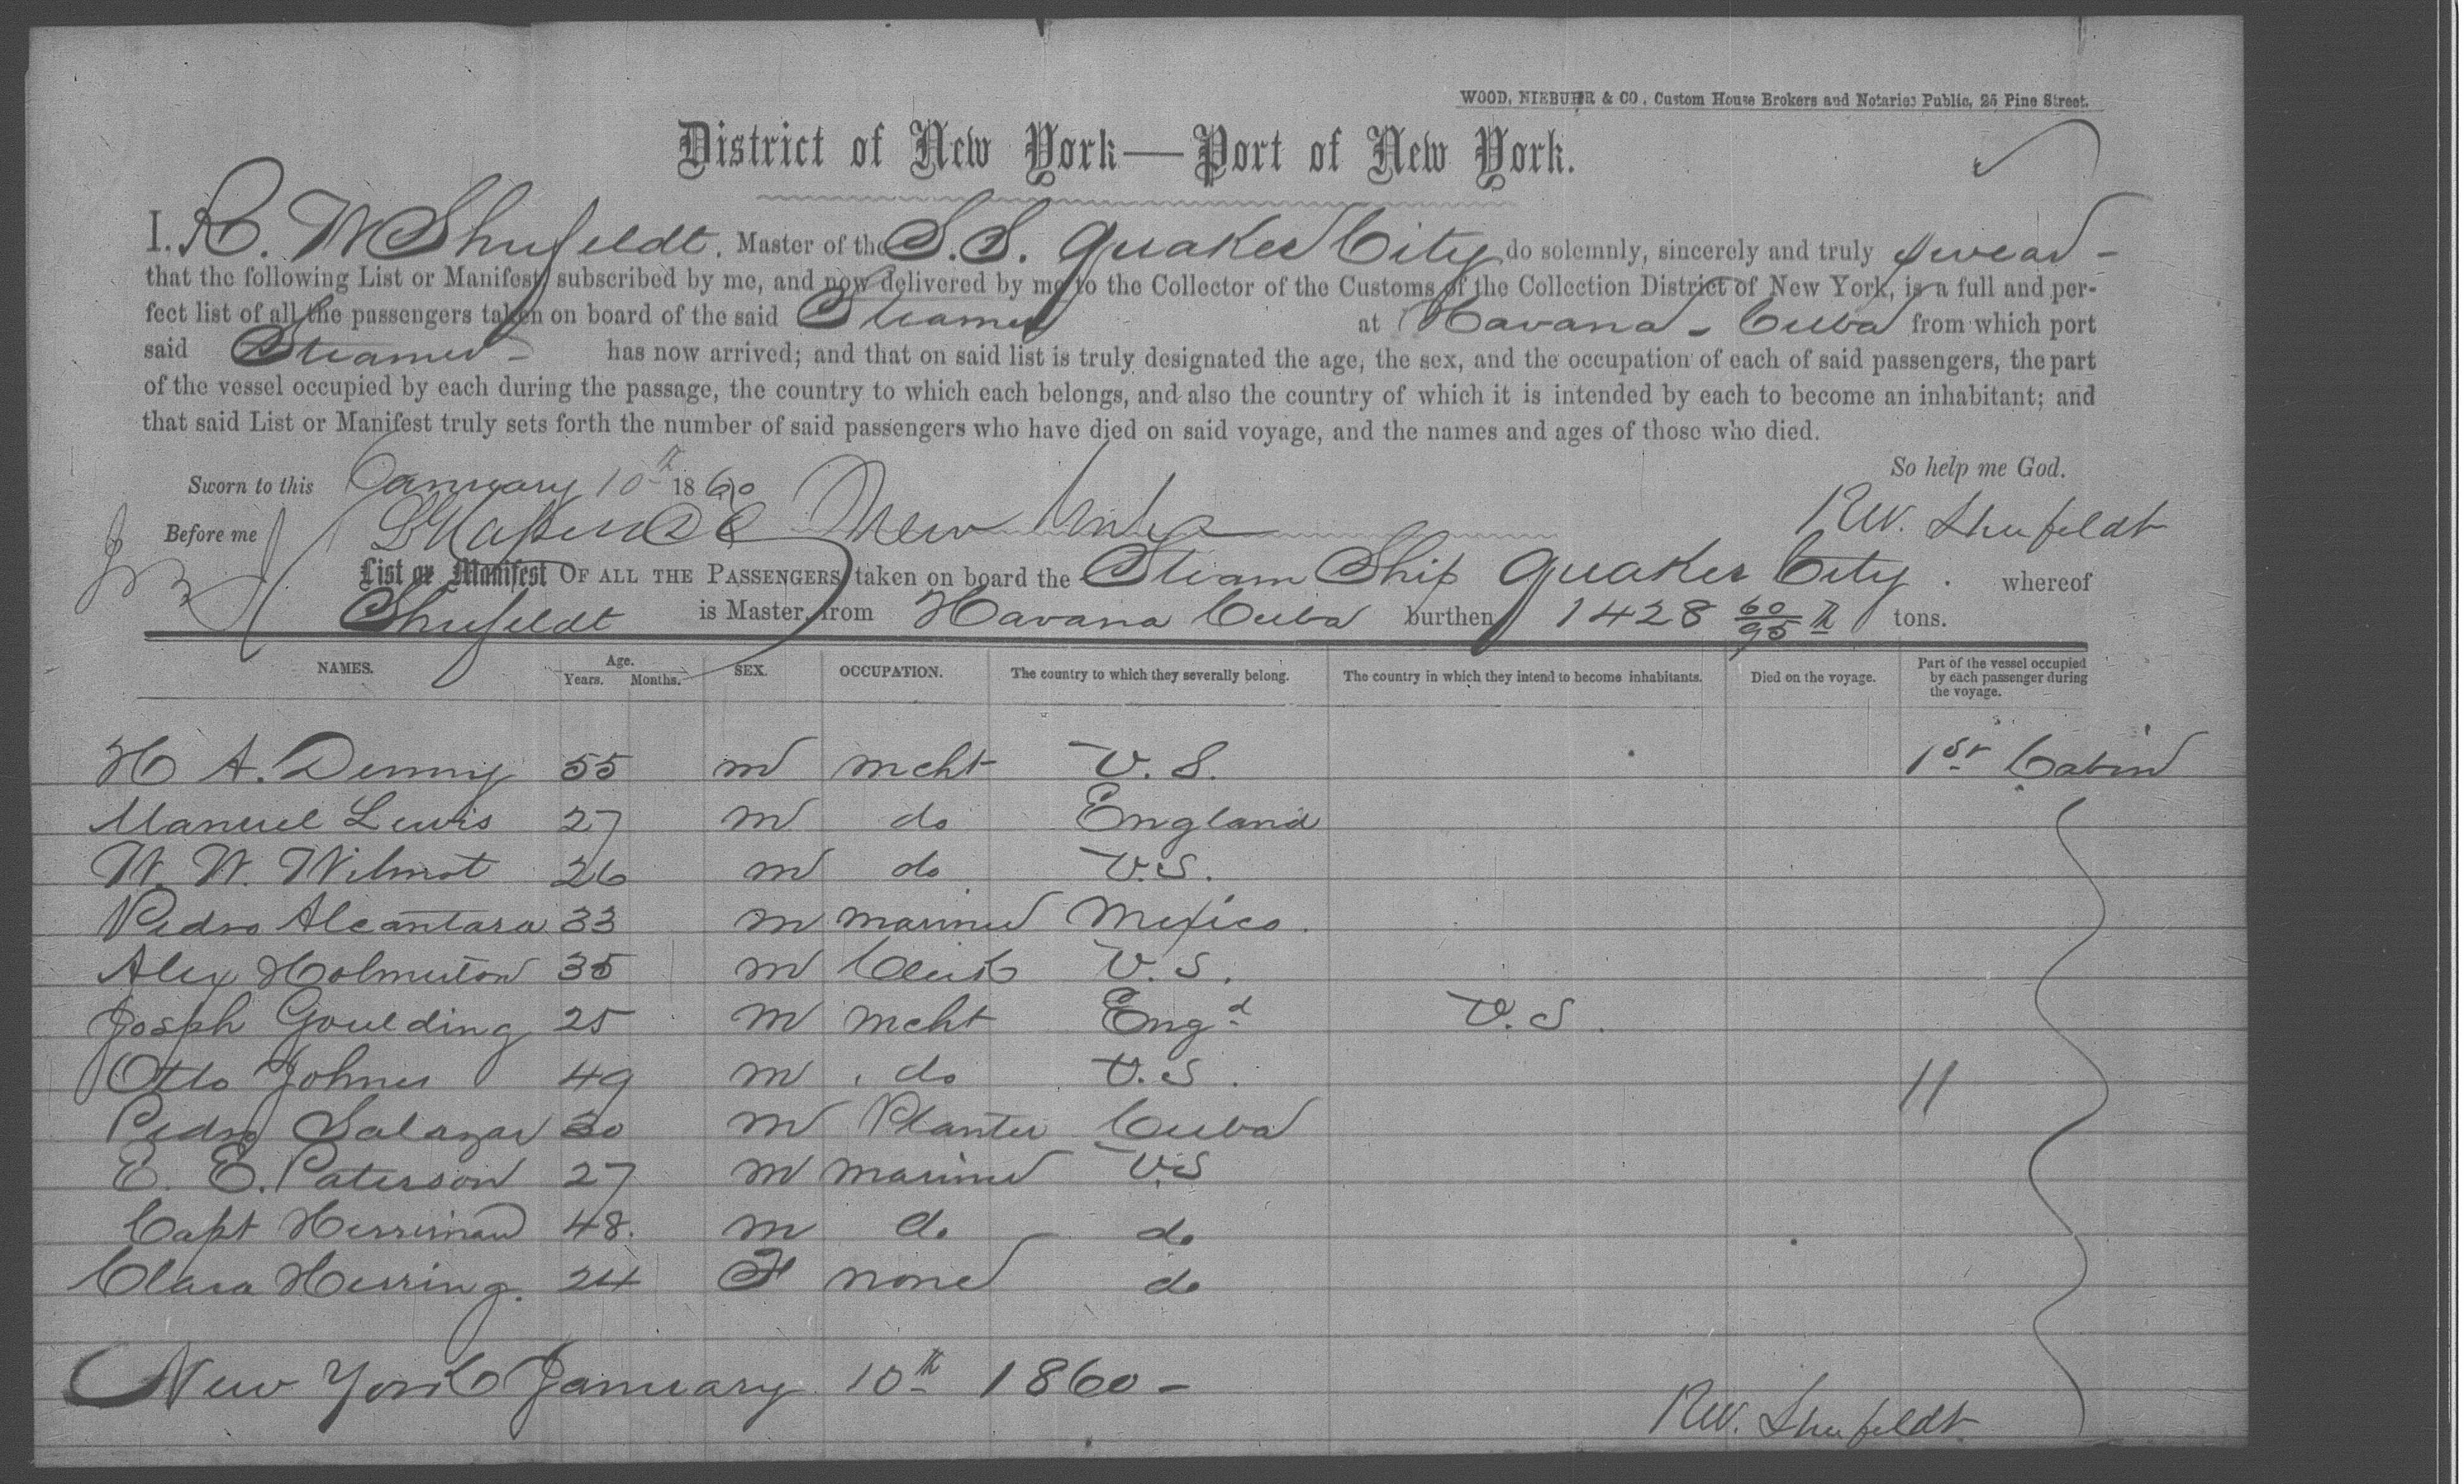 WOOD, NIEBUHR & CO., Custom House Brokers and Notaries Public, 25 Pine Street.
District of New York—Port of New York.
I, R. W Shufeldt, Master of the S.S. Quaker City do solemnly, sincerely and truly swear -
that the following List or Manifest, subscribed by me, and now delivered by me to the Collector of the Customs of the Collection District of New York, is a full and per-
fect list of all the passengers taken on board of the said Steamer at Havana - Cuba from which port
said Steamer - has now arrived; and that on said list is truly designated the age, the sex, and the occupation of each of said passengers, the part
of the vessel occupied by each during the passage, the country to which each belongs, and also the country of which it is intended by each to become an inhabitant; and
that said List or Manifest truly sets forth the number of said passengers who have died on said voyage, and the names and ages of those who died.
So help me God.
Sworn to this January 10th 1860
Before me
R W. Shufeldt
List or Manifest OF ALL THE PASSENGERS taken on board the Steam Ship Quaker City. whereof
Shufeldt is Master, from Havana Cuba burthen 1428 60/95 th tons.
NAMES. Age. Years. Months. SEX. OCCUPATION. The country to which they severally belong. The country in which they intend to become inhabitants. Died on the voyage. Part of the vessel occupied by each passenger during the voyage.
H A. Denny 55 m mcht U. S. 1st Cabin
Manuel Lewis 27 m do England
W. W. Wilmot 26 m do U.S.
Pedro Alcantara 33 m mariner Mexico.
Alex Holmerton 35 m Clerk U. S.
Josph Goulding 25 m mcht Engd U. S.
Otto Johnes 49 m do U. S. 11
Pedro Salazar 30 m Planter Cuba
E. E. Paterson 27 m mariner U.S
Capt Herriman 48. m do do
Clara Herring. 24 F none do
New York January 10th 1860 -
R W. Shufeldt